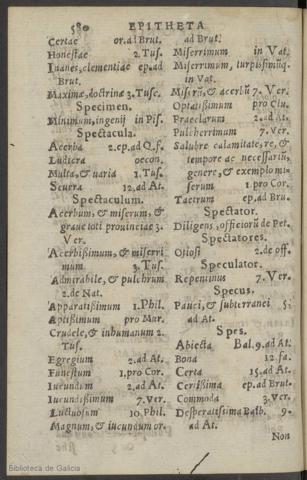 580 EPITHETA
Certae or.ad Brut.
Honestae 2. Tus.
Inanes, clementiae ep.ad
Brut.
Maximae, doctrinae 3. Tusc.
Specimen.
Minimum, ingenij in Pis.
Spectacula.
Acerba 2.ep.ad Q.f.
Ludicra oecon.
Multa, & varia 1. Tus.
Seuera 12.ad At.
Spectaculum.
Acerbum, & miserum, &
graue toti prouinciae 3.
Ver.
Acerbißimum, & miserri
mum 3. Tus.
Admirabile, & pulchrum
2.de Nat.
Apparatißimum 1. Phil.
Aptißimum pro Mur.
Crudele, & inhumanum 2.
Tus.
Egregium 2.ad At.
Funestum 1.pro Cor.
Iucundum 2.ad At.
Iucundißimum 7. Ver.
Luctuosum 10. Phil.
Magnum, & iucundum or.
ad Brut.
Miserrimum in Vat.
Miserrimum, turpißimúq.
in Vat.
Miserū, & acerbū 7. Ver.
Optatißimum pro Clu.
Praeclarum 2.ad At.
Pulcherrimum 7. Ver.
Salubre calamitate, re, &
tempore ac necessariū,
genere, & exemplo mi-
serum 1. pro Cor.
Taetrum ep.ad Bru.
Spectator.
Diligens, officiorū de Pet.
Spectatores.
Otiosi 2.de off.
Speculator.
Repentinus 7. Ver.
Specus.
Pauci, & subterranei 5.
ad At.
Spes.
Abiecta Bal.9.ad At.
Bona 12.fa.
Certa 15.ad At.
Certißima ep.ad Brut.
Commoda 3. Ver.
Desperatißima Balb. 9.
ad At.
Non
Biblioteca de Galicia